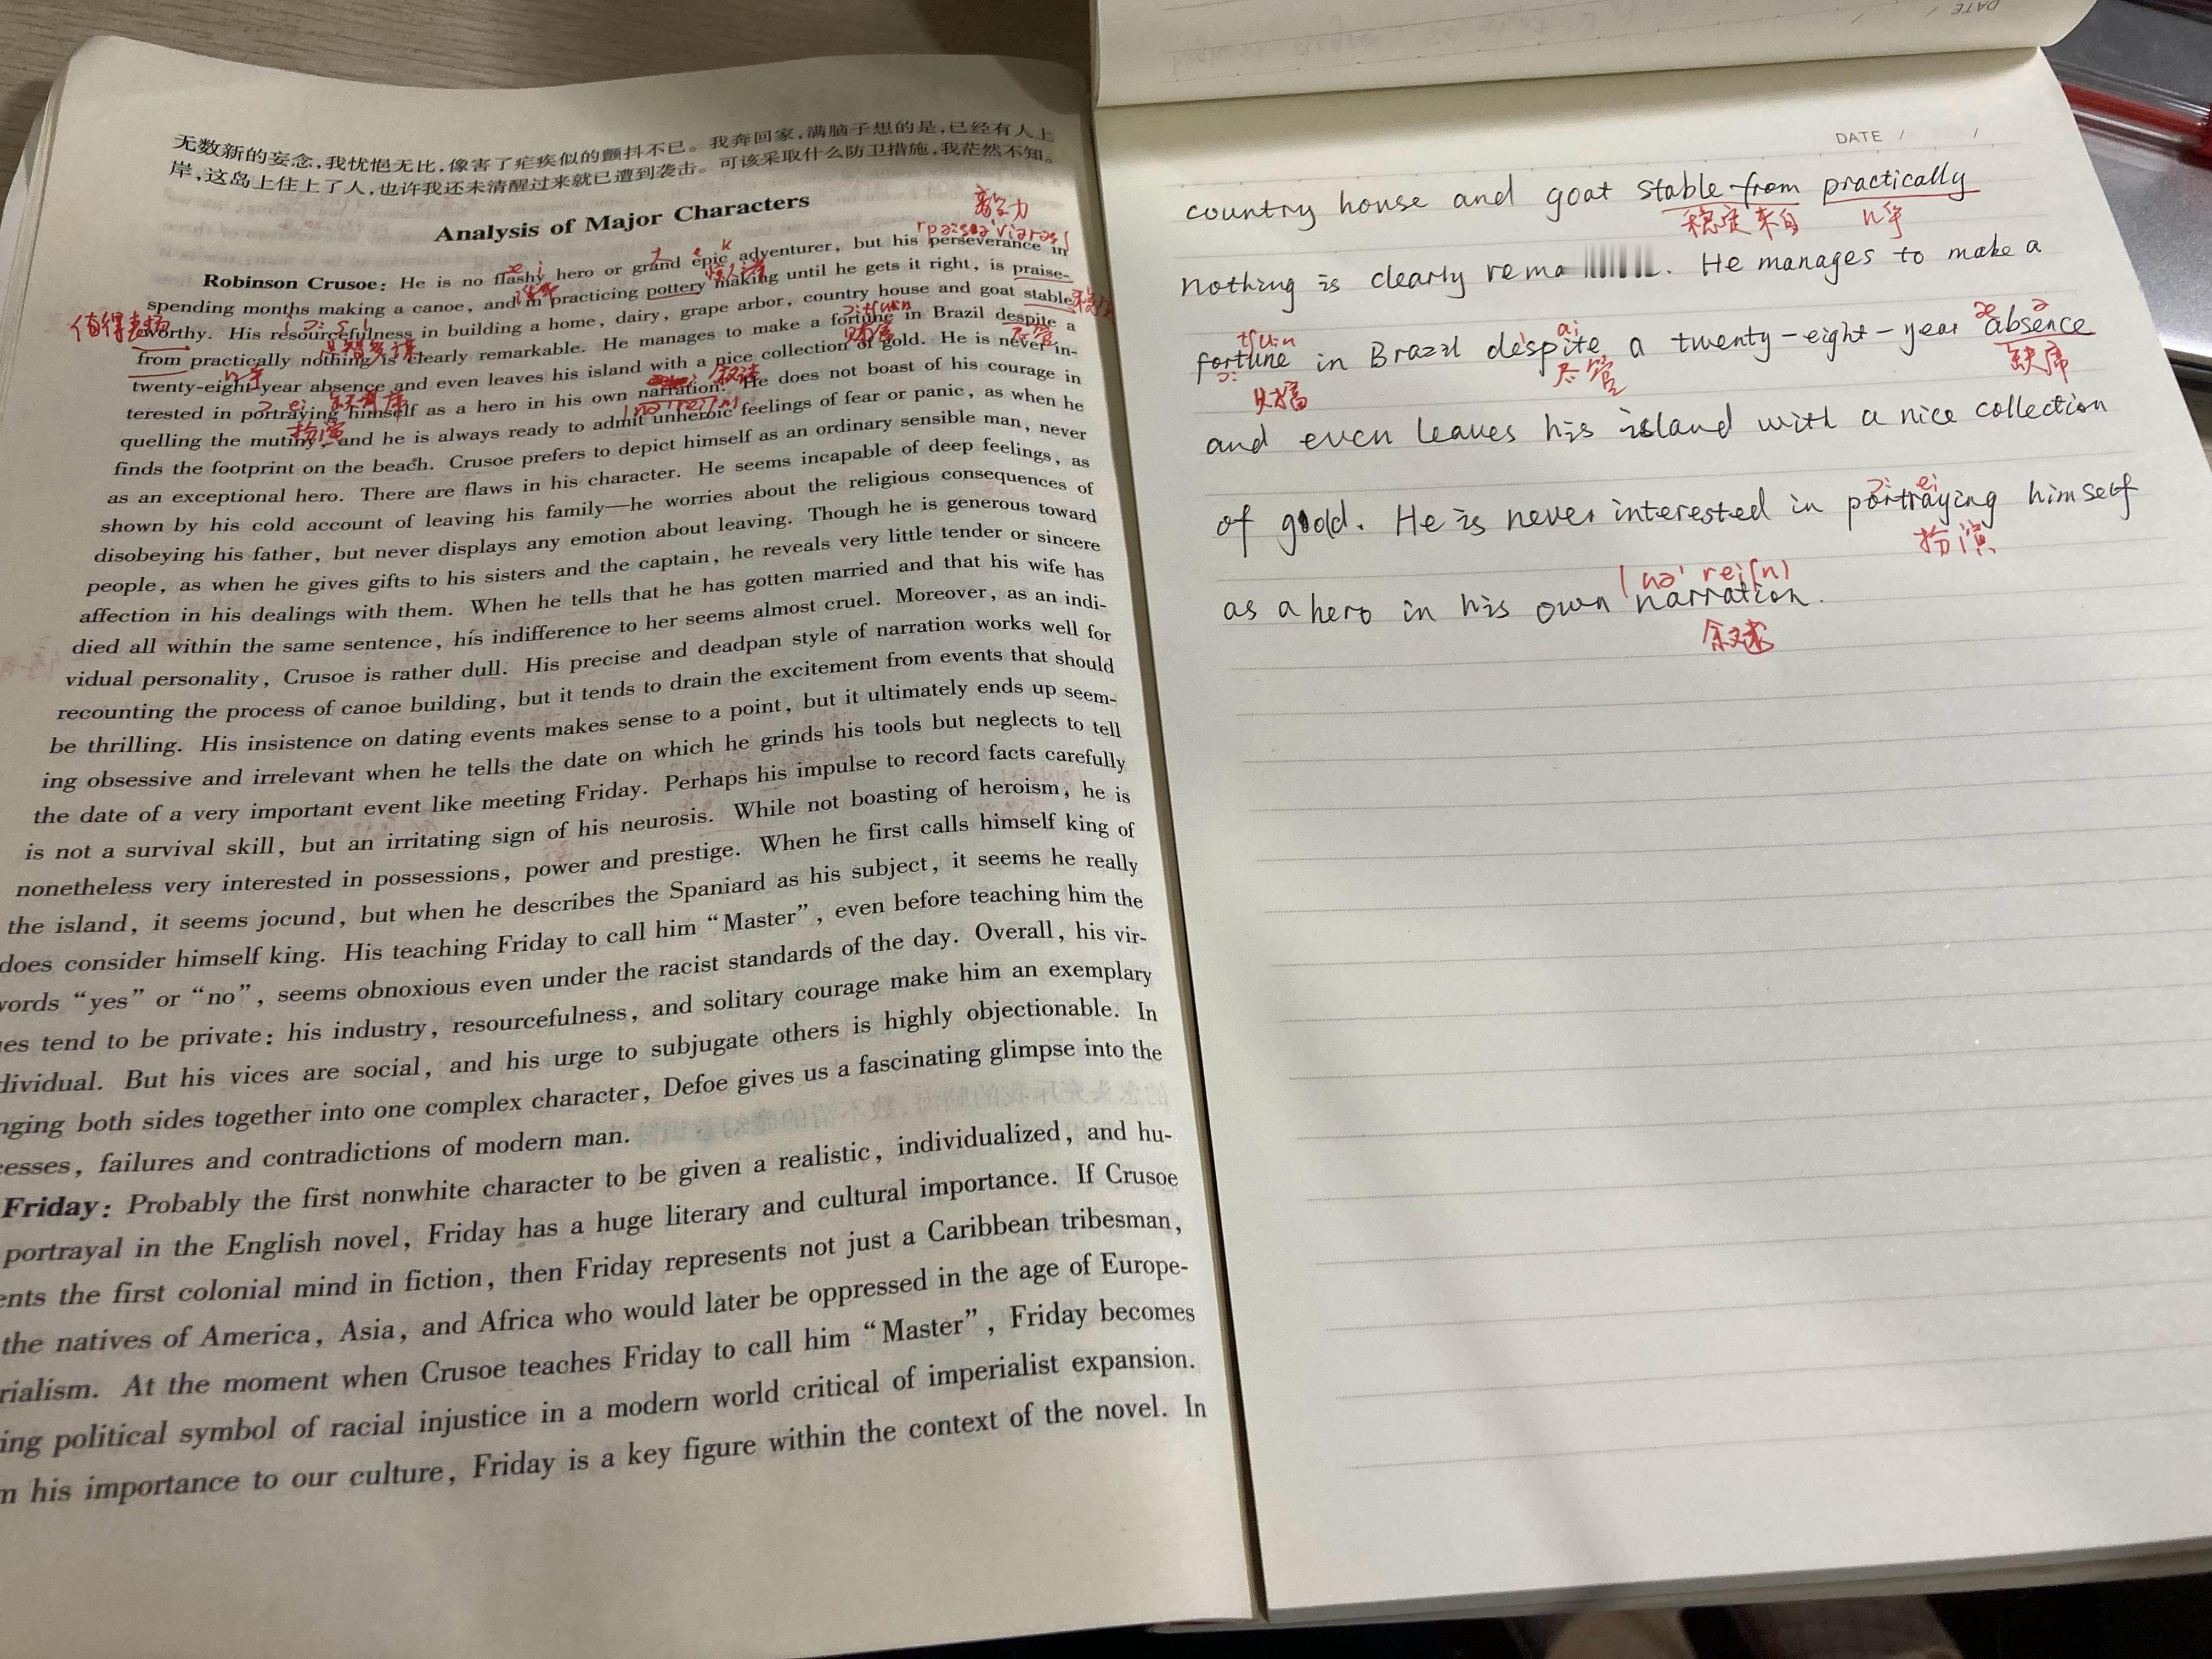 无数新的妄念,我忧悒无比,像害了疟疾似的颤抖不已。我奔回家,满脑子想的是,已经有人上
岸,这岛上住上了人,也许我还未清醒过来就已遭到袭击。可该采取什么防卫措施,我茫然不知。
Analysis of Major Characters
Robinson Crusoe: He is no flashy hero or grand epic adventurer, but his perseverance in
spending months making a canoe, and in practicing pottery making until he gets it right, is praise-
worthy. His resourcefulness in building a home, dairy, grape arbor, country house and goat stable
from practically nothing is clearly remarkable. He manages to make a fortune in Brazil despite a
twenty-eight-year absence and even leaves his island with a nice collection of gold. He is never in-
terested in portraying himself as a hero in his own narration. He does not boast of his courage in
quelling the mutiny, and he is always ready to admit unheroic feelings of fear or panic, as when he
finds the footprint on the beach. Crusoe prefers to depict himself as an ordinary sensible man, never
as an exceptional hero. There are flaws in his character. He seems incapable of deep feelings, as
shown by his cold account of leaving his family—he worries about the religious consequences of
disobeying his father, but never displays any emotion about leaving. Though he is generous toward
people, as when he gives gifts to his sisters and the captain, he reveals very little tender or sincere
affection in his dealings with them. When he tells that he has gotten married and that his wife has
died all within the same sentence, his indifference to her seems almost cruel. Moreover, as an indi-
vidual personality, Crusoe is rather dull. His precise and deadpan style of narration works well for
recounting the process of canoe building, but it tends to drain the excitement from events that should
be thrilling. His insistence on dating events makes sense to a point, but it ultimately ends up seem-
ing obsessive and irrelevant when he tells the date on which he grinds his tools but neglects to tell
the date of a very important event like meeting Friday. Perhaps his impulse to record facts carefully
is not a survival skill, but an irritating sign of his neurosis. While not boasting of heroism, he is
nonetheless very interested in possessions, power and prestige. When he first calls himself king of
the island, it seems jocund, but when he describes the Spaniard as his subject, it seems he really
does consider himself king. His teaching Friday to call him “Master”, even before teaching him the
words “yes” or “no”, seems obnoxious even under the racist standards of the day. Overall, his vir-
ues tend to be private: his industry, resourcefulness, and solitary courage make him an exemplary
dividual. But his vices are social, and his urge to subjugate others is highly objectionable. In
nging both sides together into one complex character, Defoe gives us a fascinating glimpse into the
cesses, failures and contradictions of modern man.
Friday: Probably the first nonwhite character to be given a realistic, individualized, and hu-
portrayal in the English novel, Friday has a huge literary and cultural importance. If Crusoe
ents the first colonial mind in fiction, then Friday represents not just a Caribbean tribesman,
the natives of America, Asia, and Africa who would later be oppressed in the age of Europe-
rialism. At the moment when Crusoe teaches Friday to call him “Master”, Friday becomes
ing political symbol of racial injustice in a modern world critical of imperialist expansion.
n his importance to our culture, Friday is a key figure within the context of the novel. In
毅力
值得表扬
财富
尽管
扮演
DATE / /
country house and goat stable from practically
稳定 来自
nothing is clearly rema . He manages to make a
fortune in Brazil despite a twenty-eight-year absence
财富 尽管 缺席
and even leaves his island with a nice collection
of gold. He is never interested in portraying himself
扮演
as a hero in his own narration.
叙述